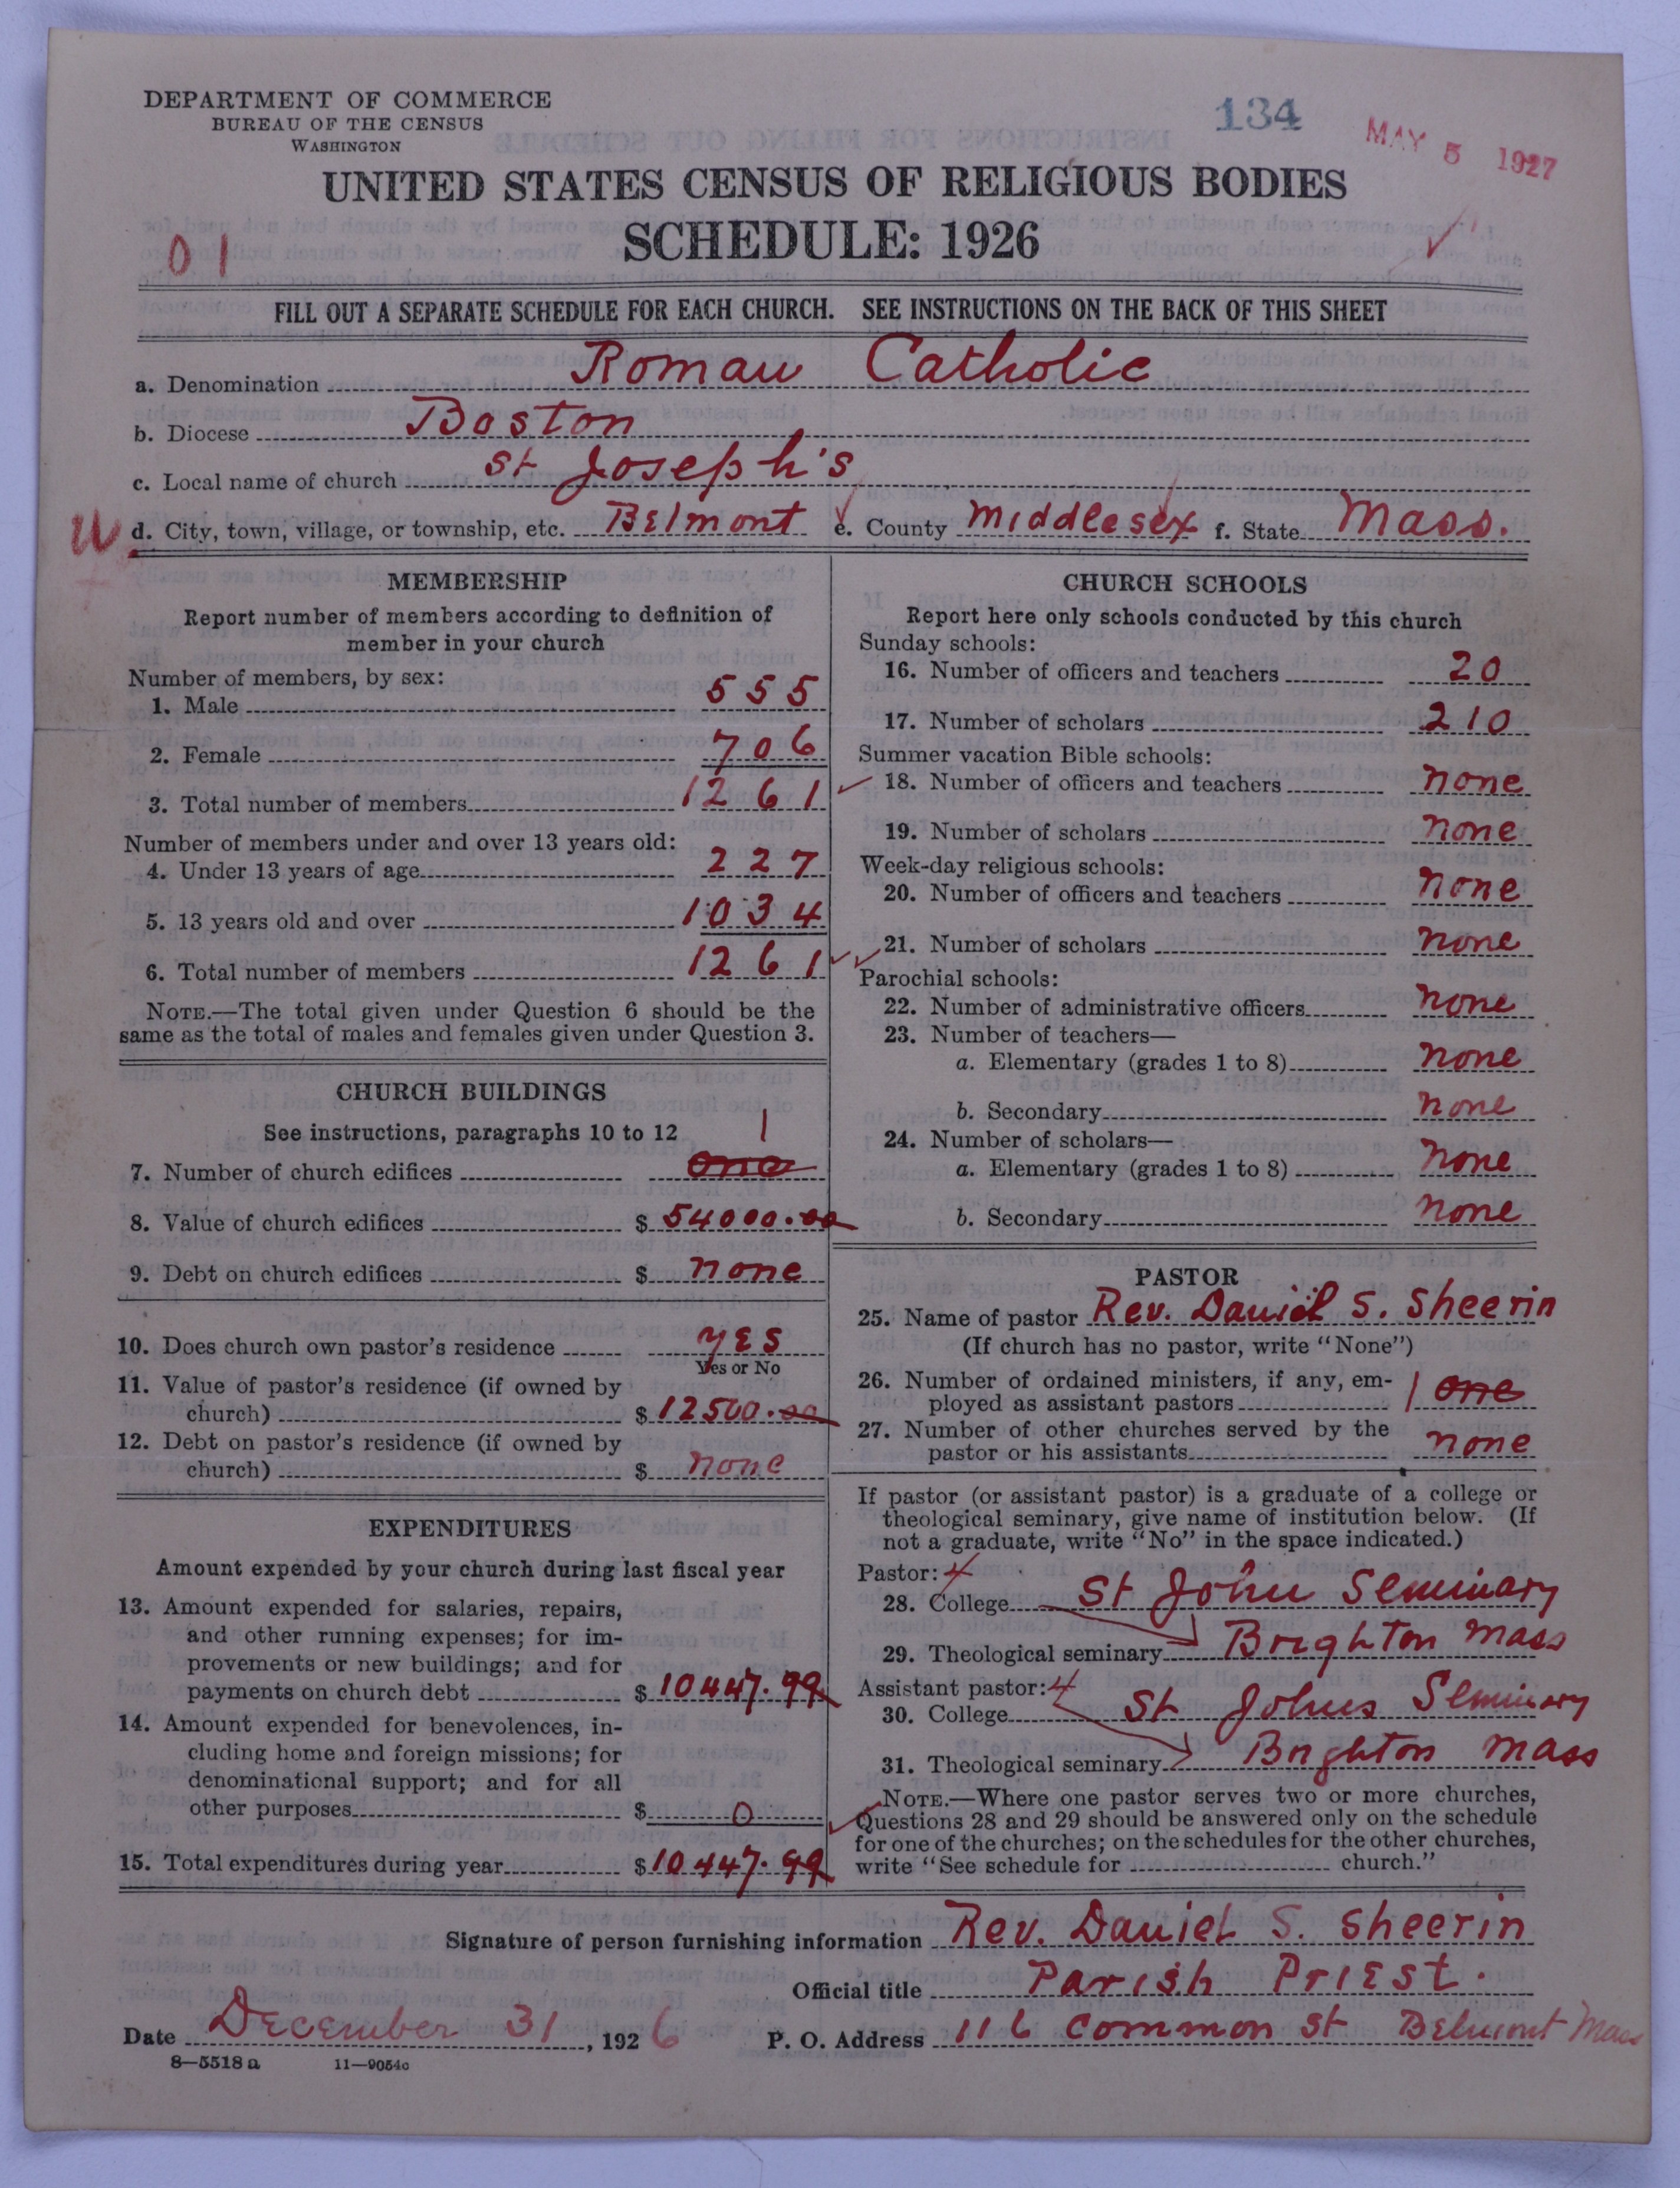 DEPARTMENT OF COMMERCE
BUREAU OF THE CENSUS
WASHINGTON
134
MAY 5 1927
UNITED STATES CENSUS OF RELIGIOUS BODIES
SCHEDULE: 1926
01
FILL OUT A SEPARATE SCHEDULE FOR EACH CHURCH. SEE INSTRUCTIONS ON THE BACK OF THIS SHEET
a. Denomination Roman Catholic
b. Diocese Boston
c. Local name of church St Joseph's
d. City, town, village, or township, etc. Belmont e. County Middlesex f. State Mass.
MEMBERSHIP
Report number of members according to definition of
member in your church
Number of members, by sex:
1. Male 555
2. Female 706
3. Total number of members 1261
Number of members under and over 13 years old:
4. Under 13 years of age 227
5. 13 years old and over 1034
6. Total number of members 1261
NOTE.—The total given under Question 6 should be the
same as the total of males and females given under Question 3.
CHURCH BUILDINGS
See instructions, paragraphs 10 to 12
1
7. Number of church edifices one
8. Value of church edifices $ 54000.00
9. Debt on church edifices $ none
10. Does church own pastor's residence YES
Yes or No
11. Value of pastor's residence (if owned by
church) $ 12500.00
12. Debt on pastor's residence (if owned by
church) $ none
EXPENDITURES
Amount expended by your church during last fiscal year
13. Amount expended for salaries, repairs,
and other running expenses; for im-
provements or new buildings; and for
payments on church debt $ 10447.99
14. Amount expended for benevolences, in-
cluding home and foreign missions; for
denominational support; and for all
other purposes $ 0
15. Total expenditures during year $ 10447.99
CHURCH SCHOOLS
Report here only schools conducted by this church
Sunday schools:
16. Number of officers and teachers 20
17. Number of scholars 210
Summer vacation Bible schools:
18. Number of officers and teachers none
19. Number of scholars none
Week-day religious schools:
20. Number of officers and teachers none
21. Number of scholars none
Parochial schools:
22. Number of administrative officers none
23. Number of teachers—
a. Elementary (grades 1 to 8) none
b. Secondary none
24. Number of scholars—
a. Elementary (grades 1 to 8) none
b. Secondary none
PASTOR
25. Name of pastor Rev. Daniel S. Sheerin
(If church has no pastor, write "None")
26. Number of ordained ministers, if any, em-
ployed as assistant pastors 1 one
27. Number of other churches served by the
pastor or his assistants none
If pastor (or assistant pastor) is a graduate of a college or
theological seminary, give name of institution below. (If
not a graduate, write "No" in the space indicated.)
Pastor: 4
28. College St John Seminary
29. Theological seminary Brighton Mass
Assistant pastor: 4
30. College St Johns Seminary
31. Theological seminary Brighton Mass
NOTE.—Where one pastor serves two or more churches,
Questions 28 and 29 should be answered only on the schedule
for one of the churches; on the schedules for the other churches,
write "See schedule for church."
Signature of person furnishing information Rev. Daniel S. Sheerin
Official title Parish Priest.
Date December 31, 1926 P. O. Address 116 Common St Belmont Mass
8—5518 a 11—9054c